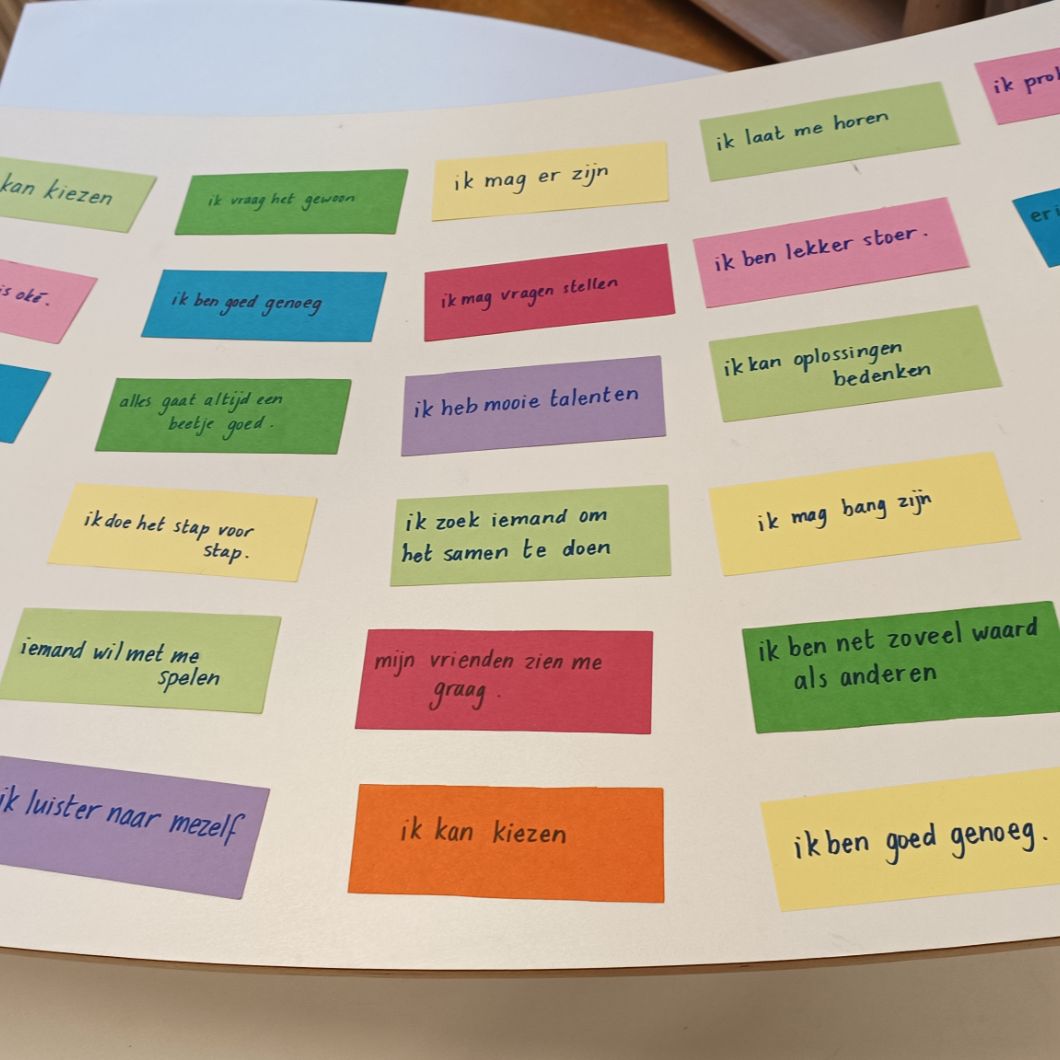 kan kiezen
ik vraag het gewoon
ik mag er zijn
ik laat me horen
ik
is oké.
ik ben goed genoeg
ik mag vragen stellen
ik ben lekker stoer.
alles gaat altijd een
beetje goed.
ik heb mooie talenten
ik kan oplossingen
bedenken
ik doe het stap voor
stap.
ik zoek iemand om
het samen te doen
ik mag bang zijn
iemand wil met me
spelen
mijn vrienden zien me
graag.
ik ben net zoveel waard
als anderen
ik luister naar mezelf
ik kan kiezen
ik ben goed genoeg.